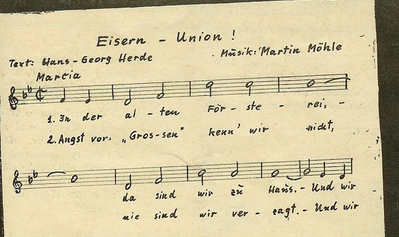 Eisern - Union !
Text: Hans-Georg Herde Musik: Martin Möhle
Marcia
1. In der al - ten För - ste - rei, -
2. Angst vor „Gros-sen" kenn' wir nicht,
da sind wir zu Haus. - Und wir
nie sind wir ver - zagt. - Und wir